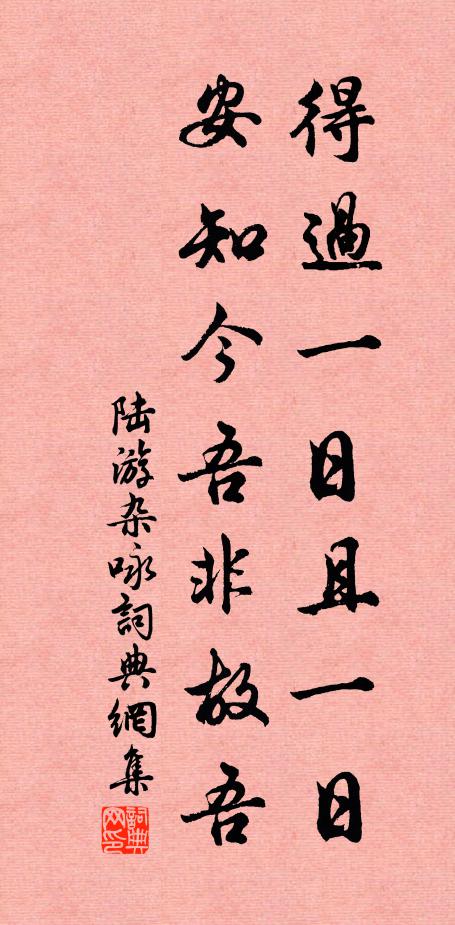 得過一日且一日
安知今吾非故吾
陆游杂咏詞典網集
詞典网印